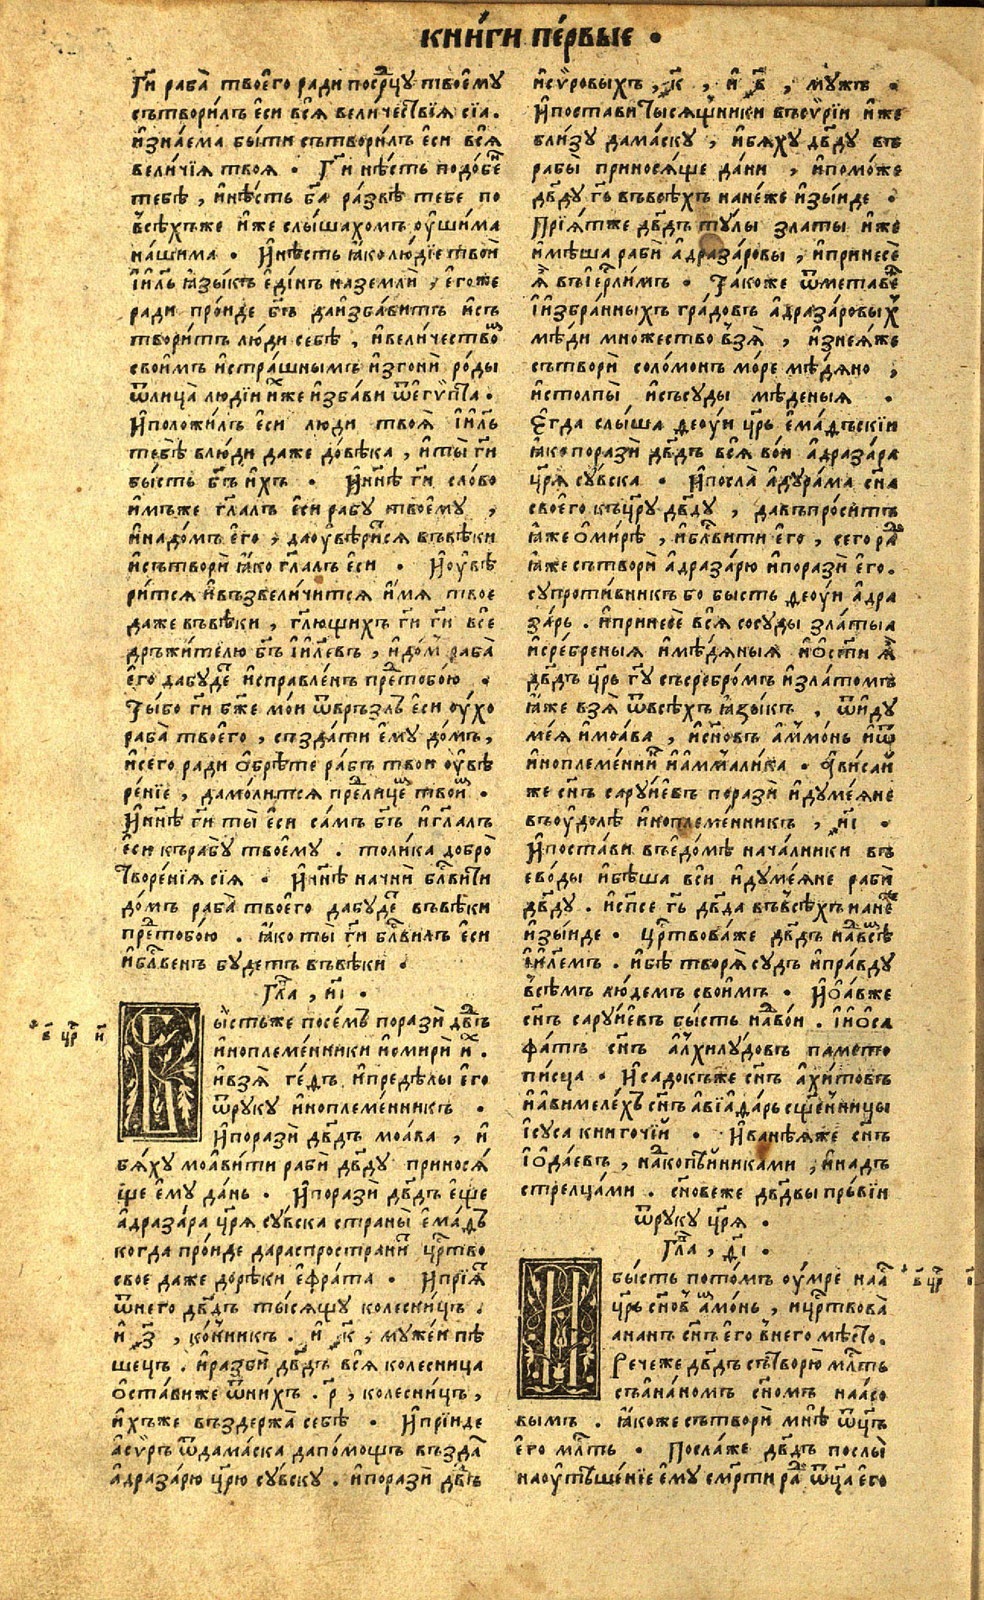 книги первые ·
гⷭ҇и раба̀ твоего̀ ради посрⷣцу твоему
сътвори́лъ еси всѧ̀ вели́чествїѧ сїа.
и҆зна́ема бы́ти сътвори́лъ еси всѧ̀
вели́чїѧ твоѧ · гⷭ҇и нѣ́сть подо́бенъ
тебѣ , и҆нѣ́сть бг҃а ра́звѣ тебе по
всѣ́хъже и҆же слы́шахомъ ѹ҆ши́ма
на́шима · И҆нѣ́сть ꙗ҆колю́дїе твои̑
і҆и҃ль ꙗ҆зы́къ е҆ди́нъ наземлѝ , е҆гоже
ради про́иде бг҃ъ даи҆зба́витъ и҆съ
твори́тъ лю́ди себѣ̀ , и҆вели́чество
свои́мъ и҆стра́шнымъ и҆згонѝ ро́ды
ѿлица̀ людїи и҆хже и҆зба́ви ѿегѵ́пта ·
И҆положи́лъ еси лю́ди твоѧ̀ і҆и҃ль
тебѣ̀ влю́ди даже до́вѣка , и҆ты̀ гⷭ҇и
бы́сть бг҃ъ и҆хъ · И҆нн҃ѣ гⷭ҇и сло́во
и҆мъже гл҃алъ еси рабу твоему ,
и҆надо́мъ е҆го̀ , даѹ҆вѣ́ритсѧ въвѣ́ки
и҆сътворѝ ꙗ҆ко гл҃алъ еси · И҆ѹ҆вѣ
ри́тсѧ и҆възвели́читсѧ и҆́мѧ твое
даже въвѣ́ки , гл҃ющихъ гⷭ҇и гⷭ҇и все
дръжи́телю бг҃ъ і҆и҃левъ , и҆до́м раба̀
е҆го̀ дабу́детъ и҆спра́вленъ предтобо́ю ·
Ты́бо гⷭ҇и бж҃е мо́и ѿвръзлъ еси ѹ҆́хо
раба̀ твоего̀ , създа́ти е҆му до́мъ ,
и҆сего ради о҆брѣ́те ра́бъ твои ѹ҆вѣ
ре́нїе , дамо́литсѧ предлице́мъ твои́мъ ·
И҆нн҃ѣ гⷭ҇и ты̀ еси са́мъ бг҃ъ и҆гл҃алъ
еси кърабу̀ твоему . то́лика добро̀
творе́нїѧ сїѧ · И҆нн҃ѣ начнѝ блⷭ҇ви́ти
до́мъ раба̀ твоего̀ дабу́детъ въвѣ́ки
предтобо́ю . ꙗ҆ко ты̀ гⷭ҇и блⷭ҇вилъ еси
и҆блⷭ҇венъ бу́детъ въвѣ́ки ·
гла , и҃і ·
в҃ црⷭ҇ и҃
Бы́стьже посе́мъ поразѝ дв҃дъ
и҆ноплеме́нники и҆смирѝ и҆хъ .
и҆взѧ̀ ге́дъ и҆предѣ́лы е҆го
ѿруку и҆ноплеме́нникъ ·
И҆поразѝ дв҃дъ моа́ва , и҆
бѧ́ху моави́ти рабѝ дв҃ду приносѧ́
ще е҆му да́нь · И҆поразѝ дв҃дъ е҆ще
а҆дразара цр҃ѧ су́вска страны̀ е҆ма́дъ
когда про́иде дараспространи́тъ црⷭ҇тво
свое даже дорѣ́ки е҆фра́та · И҆прїѧ́тъ
ѿнего дв҃дъ ты́сѧщу колесни́цъ .
и҆ ҂з҃ , ко́нникъ . и҆ ҂к҃ , муже́и пѣ
шецъ . и҆разбѝ дв҃дъ всѧ̀ колесница
о҆ста́виже ѿни́хъ . р҃ , колесни́цъ ,
и҆хъже въздержа̀ себѣ · И҆прїиде
а҆сѵ́ръ ѿдама́ска дапо́мощь възда́стъ
а҆дразарю цр҃ю су́вску . и҆поразѝ дв҃дъ
и҆сѵ́ровыхъ , ҂к҃ , и҆ ҂в҃ , мужъ ·
И҆поста́ви ты́сѧщники въсѵ́рїи и҆же
бли́зу дама́ску , и҆бѧ́ху дв҃ду въ
рабы̀ приносѧ́ще да́ни , и҆помо́же
дв҃ду гⷭ҇ь въвсѣ́хъ нанѣ́же и҆зы́иде ·
Прїѧ́тже дв҃дъ ту́лы зла́ты и҆же
и҆мѣ́ша рабѝ а҆дразаровы , и҆принесѐ
ѧ҆̀ въі҆ерⷭ҇ли́мъ · Та́коже ѿметаве́тъ
и҆и҆збра́нныхъ гра́довъ а҆дразаровыхъ
мѣ́ди мно́жество взѧ̀ , и҆знеѧ́же
сътворѝ соломо́нъ мо́ре мѣ́дѧно ,
и҆столпы̀ и҆съсу́ды мѣ́деныѧ ·
Егда слы́ша деоу́и цр҃ь е҆ма́дъскїи
ꙗ҆копоразѝ дв҃дъ всѧ̀ во́и а҆дразара
цр҃ѧ су́вска · И҆посла̀ а҆дура́ма сн҃а
своего къцр҃ю дв҃ду , давъпро́ситъ
ꙗ҆же о҆ми́рѣ , и҆блⷭ҇ви́ти е҆го , сего раⷣ
ꙗ҆же сътворѝ а҆дразарю и҆поразѝ е҆го.
супроти́вникъ бо бысть деоу́и а҆дра
за́рь . и҆принесѐ всѧ̀ сосу́ды зла́тыа
и҆сре́бреныѧ и҆мѣ́дѧныѧ и҆о҆свѧти ѧ҆̀
дв҃дъ цр҃ь гⷭ҇у съсребро́мъ и҆зла́томъ
ꙗ҆же взѧ̀ ѿвсѣ́хъ ꙗ҆зы́къ , ѿи҆ду
ме́ѧ и҆моа́ва , и҆сн҃о́въ а҆ммо́нь и҆ѿ
и҆ноплеме́нникъ и҆а҆ммали́ка · а҆висаи́
же сн҃ъ сару́иевъ поразѝ и҆думе́ѧне
въѹ҆до́лѣ и҆ноплеме́нникъ , ҂и҃і ·
И҆поста́ви въе҆до́мѣ нача́лники въ
ево́ды и҆бѣ́ша вси и҆думе́ѧне рабѝ
дв҃ду . и҆спⷭ҇е гⷭ҇ь дв҃да въвсѣ́хъ нанѣ́же
и҆зы́иде · црⷭ҇твова́же дв҃дъ надвсѣ́мъ
і҆и҃лемъ . и҆бѣ̀ творѧ̀ су́дъ и҆пра́вду
всѣ́мъ лю́демъ свои́мъ · И҆о҆а́вже
сн҃ъ сару́иевъ бы́сть надво́и . і҆и҆оса
фа́тъ сн҃ъ а҆лхилу́довъ памето
пи́сца · И҆садо́къже сн҃ъ а҆хито́въ
и҆а҆вимеле́хъ сн҃ъ а҆вїа́дарь сщ҃е́нницы
і҆су́са книгочїи̑ · И҆ване́ꙗже сн҃ъ
і҆о҆да́евъ , надкопѣ́иниками , и҆надъ
стрелца́ми . сн҃овеже дв҃двы пръ́вїи
ѿруку цр҃ѧ ·
гла , ѳ҃і ·
в҃ црⷭ҇ і҃
И҆бы́сть пото́мъ ѹ҆́мре наа́съ
цр҃ь сн҃о́въ а҆мо́нь , и҆црⷭ҇твова̀
ана́нъ сн҃ъ е҆го вне́го мѣ́сто.
Рече́же дв҃дъ сътворю̀ млⷭ҇ть
съа҆на́номъ сн҃омъ наа́со
вымъ . ꙗ҆коже сътворѝ мнѣ̀ ѿц҃ъ
е҆го млⷭ҇ть · Посла́же дв҃дъ послы̀
наѹ҆тѣше́нїе е҆му сме́рти раⷣ ѿц҃а е҆го